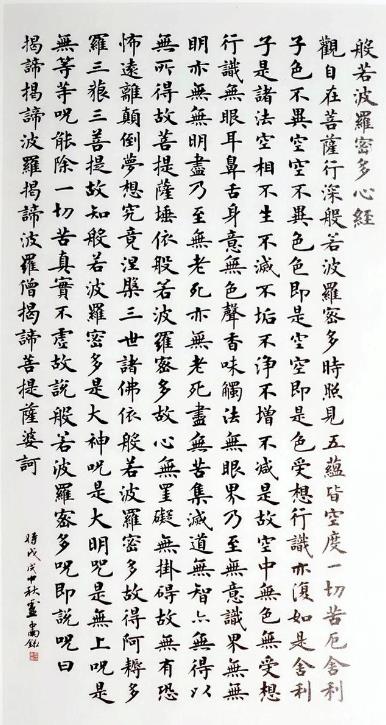 般若波羅密多心經
觀自在菩薩行深般若波羅密多時照見五蘊皆空度一切苦厄舍利
子色不異空空不異色色即是空空即是色受想行識亦復如是舍利
子是諸法空相不生不滅不垢不淨不增不減是故空中無色無受想
行識無眼耳鼻舌身意無色聲香味觸法無眼界乃至無意識界無無
明亦無無明盡乃至無老死亦無老死盡無苦集滅道無智亦無得以
無所得故菩提薩埵依般若波羅密多故心無罣礙無掛碍故無有恐
怖遠離顛倒夢想究竟涅槃三世諸佛依般若波羅密多故得阿耨多
羅三藐三菩提故知般若波羅密多是大神咒是大明咒是無上咒是
無等等咒能除一切苦真實不虛故說般若波羅密多咒即說咒曰
揭諦揭諦波羅揭諦波羅僧揭諦菩提薩婆訶
時戊戌中秋